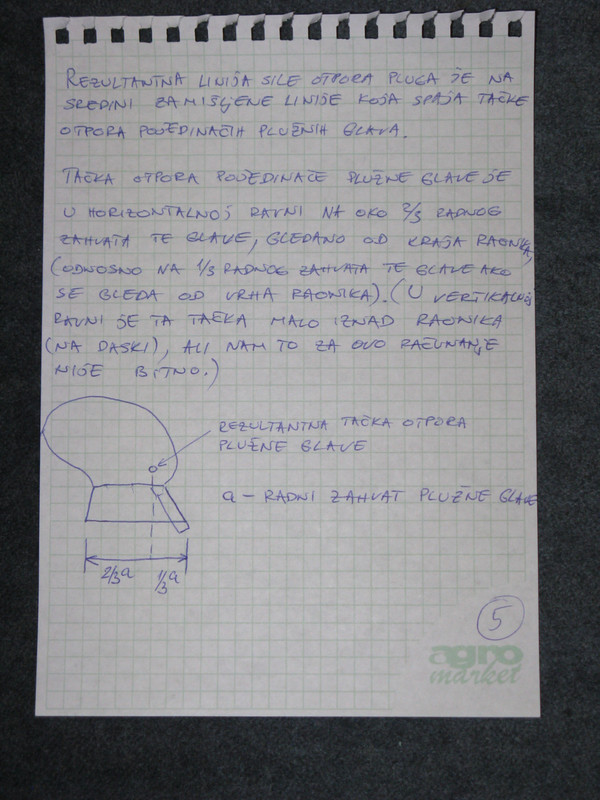 REZULTANTNA LINIJA SILE OTPORA PLUGA JE NA
SREDINI ZAMIŠLJENE LINIJE KOJA SPAJA TAČKE
OTPORA POJEDINAČIH PLUŽNIH GLAVA.
TAČKA OTPORA POJEDINAČE PLUŽNE GLAVE JE
U HORIZONTALNOJ RAVNI NA OKO 2/3 RADNOG
ZAHVATA TE GLAVE, GLEDANO OD KRAJA RAONIKA,
(ODNOSNO NA 1/3 RADNOG ZAHVATA TE GLAVE AKO
SE GLEDA OD VRHA RAONIKA). (U VERTIKALNOJ
RAVNI JE TA TAČKA MALO IZNAD RAONIKA
(NA DASKI), ALI NAM TO ZA OVO RAČUNANJE
NIJE BITNO.)
REZULTANTNA TAČKA OTPORA
PLUŽNE GLAVE
a – RADNI ZAHVAT PLUŽNE GLAVE
2/3a 1/3a
5
agro
market